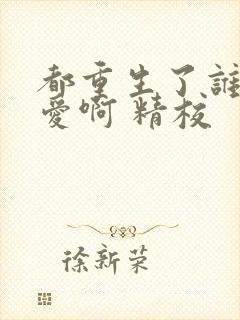 都重生了誰
愛啊 精校
徐新荣